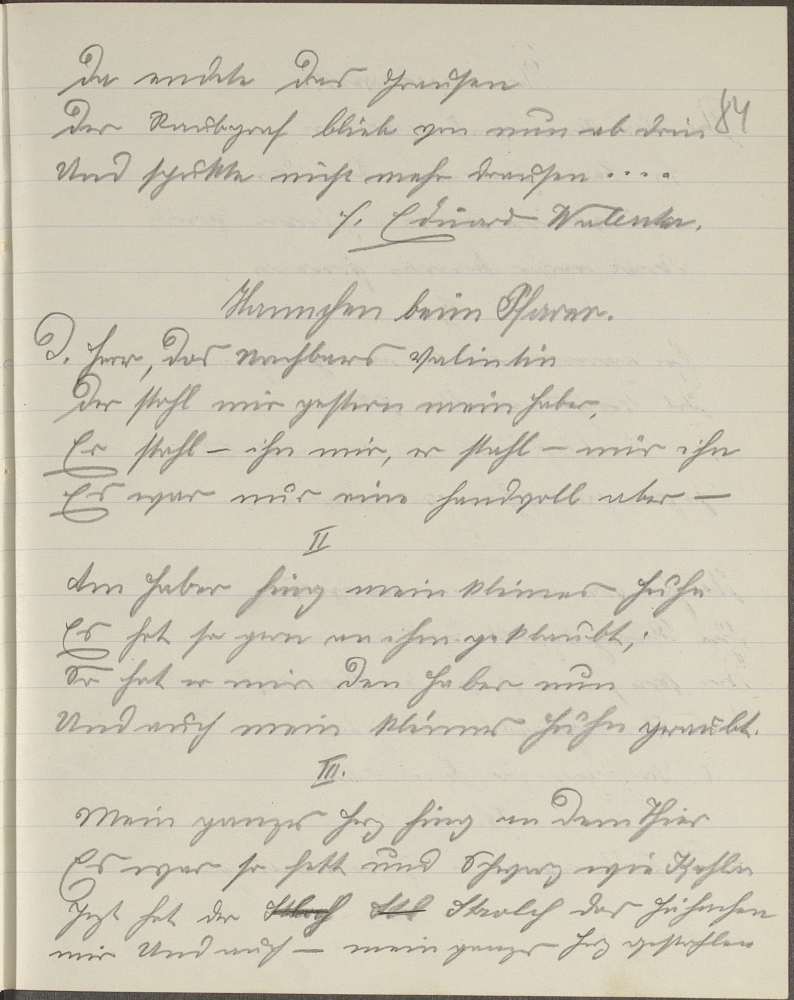 Da endete das Grausen
Der Raubgraf blieb von nun ab drin 84
Und spukte nicht mehr drausen....
f. Eduard Walenta.
Hannchen beim Pfarrer.
D. Herr, das Nachbars Valintin
Der stohl mir gestern mein Haber,
Er stahl – ihn mir, er stahl – mir ihn
Es war nur eine Handvoll aber –
II
Am Haber hing mein kleines Huhn
Es hat so gern an ihm geklaubt,;
So hat er mir den Haber nun
Und auch mein kleines Huhn geraubt.
III.
Mein ganzes Herz hing an dem Thier
Es war so fett und Schwarz wie Kohle
Jezt hat der Strolch das Hühnchen
mir Und auch – mein ganzes Herz gestohlen